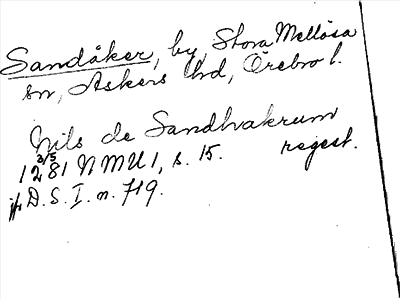 Sandåker, by, Stora Mellösa
sn, Askers hd, Örebro l.
Nils de Sandhvakrum
3/5
1281 NMU 1, s. 15. regest.
jfr D. S. I. n. 719.